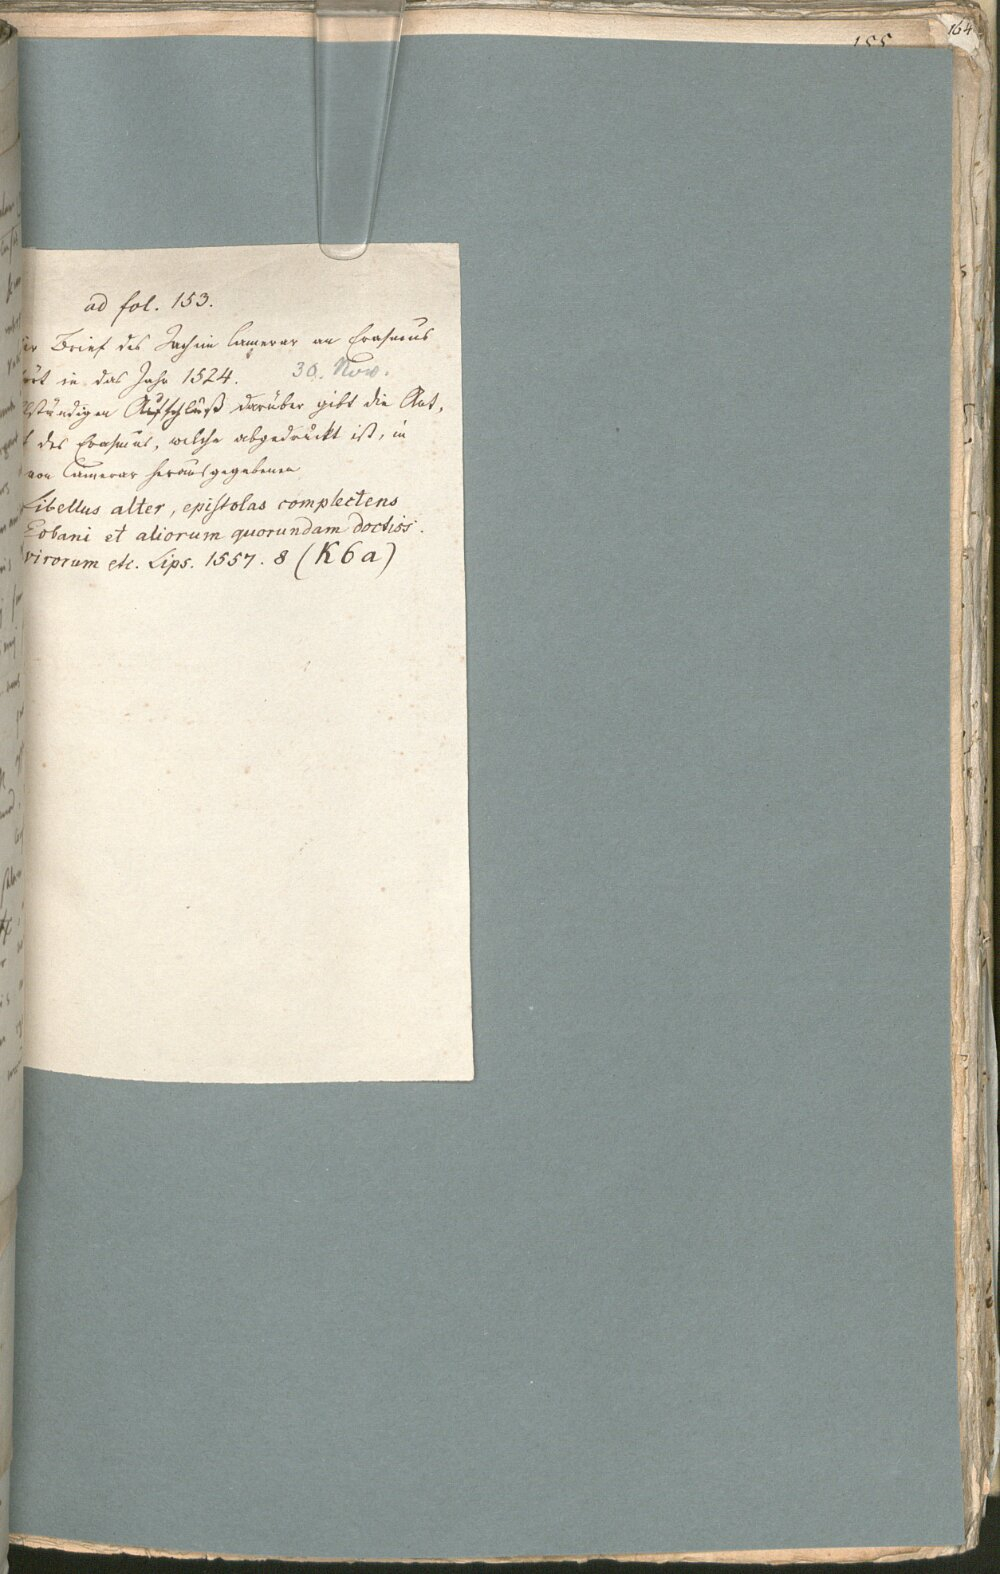 164
155
ad fol. 153.
Brief des Joachim Camerar an Erasmus
in das Jahr 1524. 30. Nov.
ständigen Aufschluß darüber gibt die Ant,
des Erasmus, welche abgedruckt ist, in
von Camerar herausgegebenen
Libellus alter, epistolas complectens
Eobani et aliorum quorundam doctiss.
virorum etc. Lips. 1557. 8 (K6a)